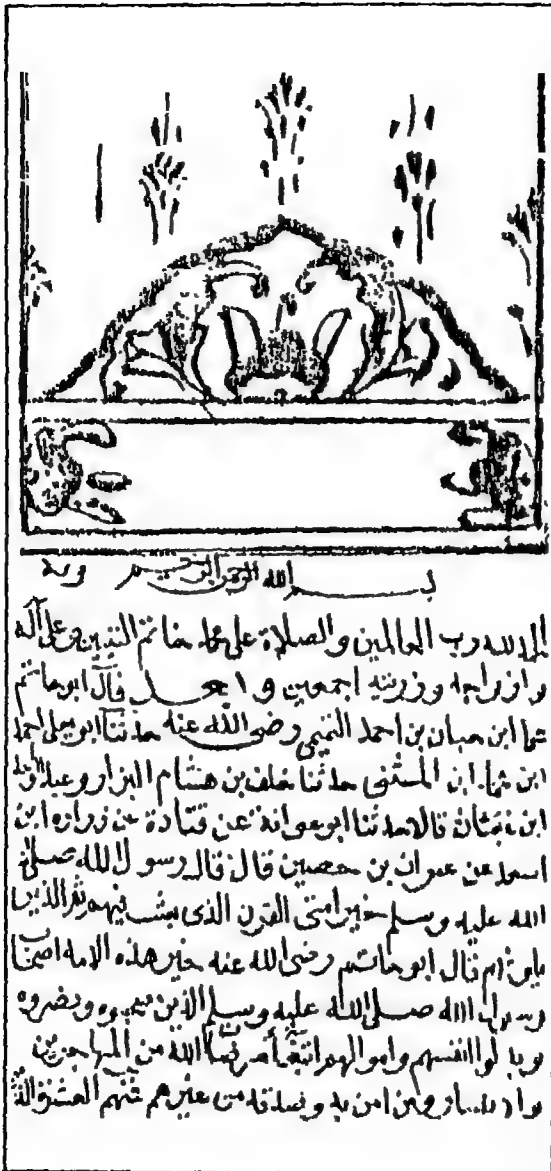 بسم الله الرحمن الرحيم وبه
الحمد لله رب العالمين والصلاة على محمد خاتم النبيين وعلى آله
وازواجه وذريته اجمعين وبعد قال ابو حاتم
محمد ابن حبان بن احمد التميمي رضى الله عنه حدثنا ابو يعلى احمد
ابن على ابن المثنى حدثنا خلف بن هشام البزار وعبد الواحد
ابن غياث قالا حدثنا ابو عوانة عن قتادة عن زرارة ابن
عن عمران بن حصين قال قال رسول الله صلى
الله عليه وسلم خير امتى القرن الذى بعثت فيهم ثم الذين
يلونهم قال ابو حاتم رضى الله عنه خير هذه الامة اصحاب
رسول الله صلى الله عليه وسلم الذين صحبوه ونصروه
وبذلوا انفسهم واموالهم ابتغاء مرضاة الله من المهاجرين
والانصار ومن امن به وصدقه من غيرهم منهم العشرة